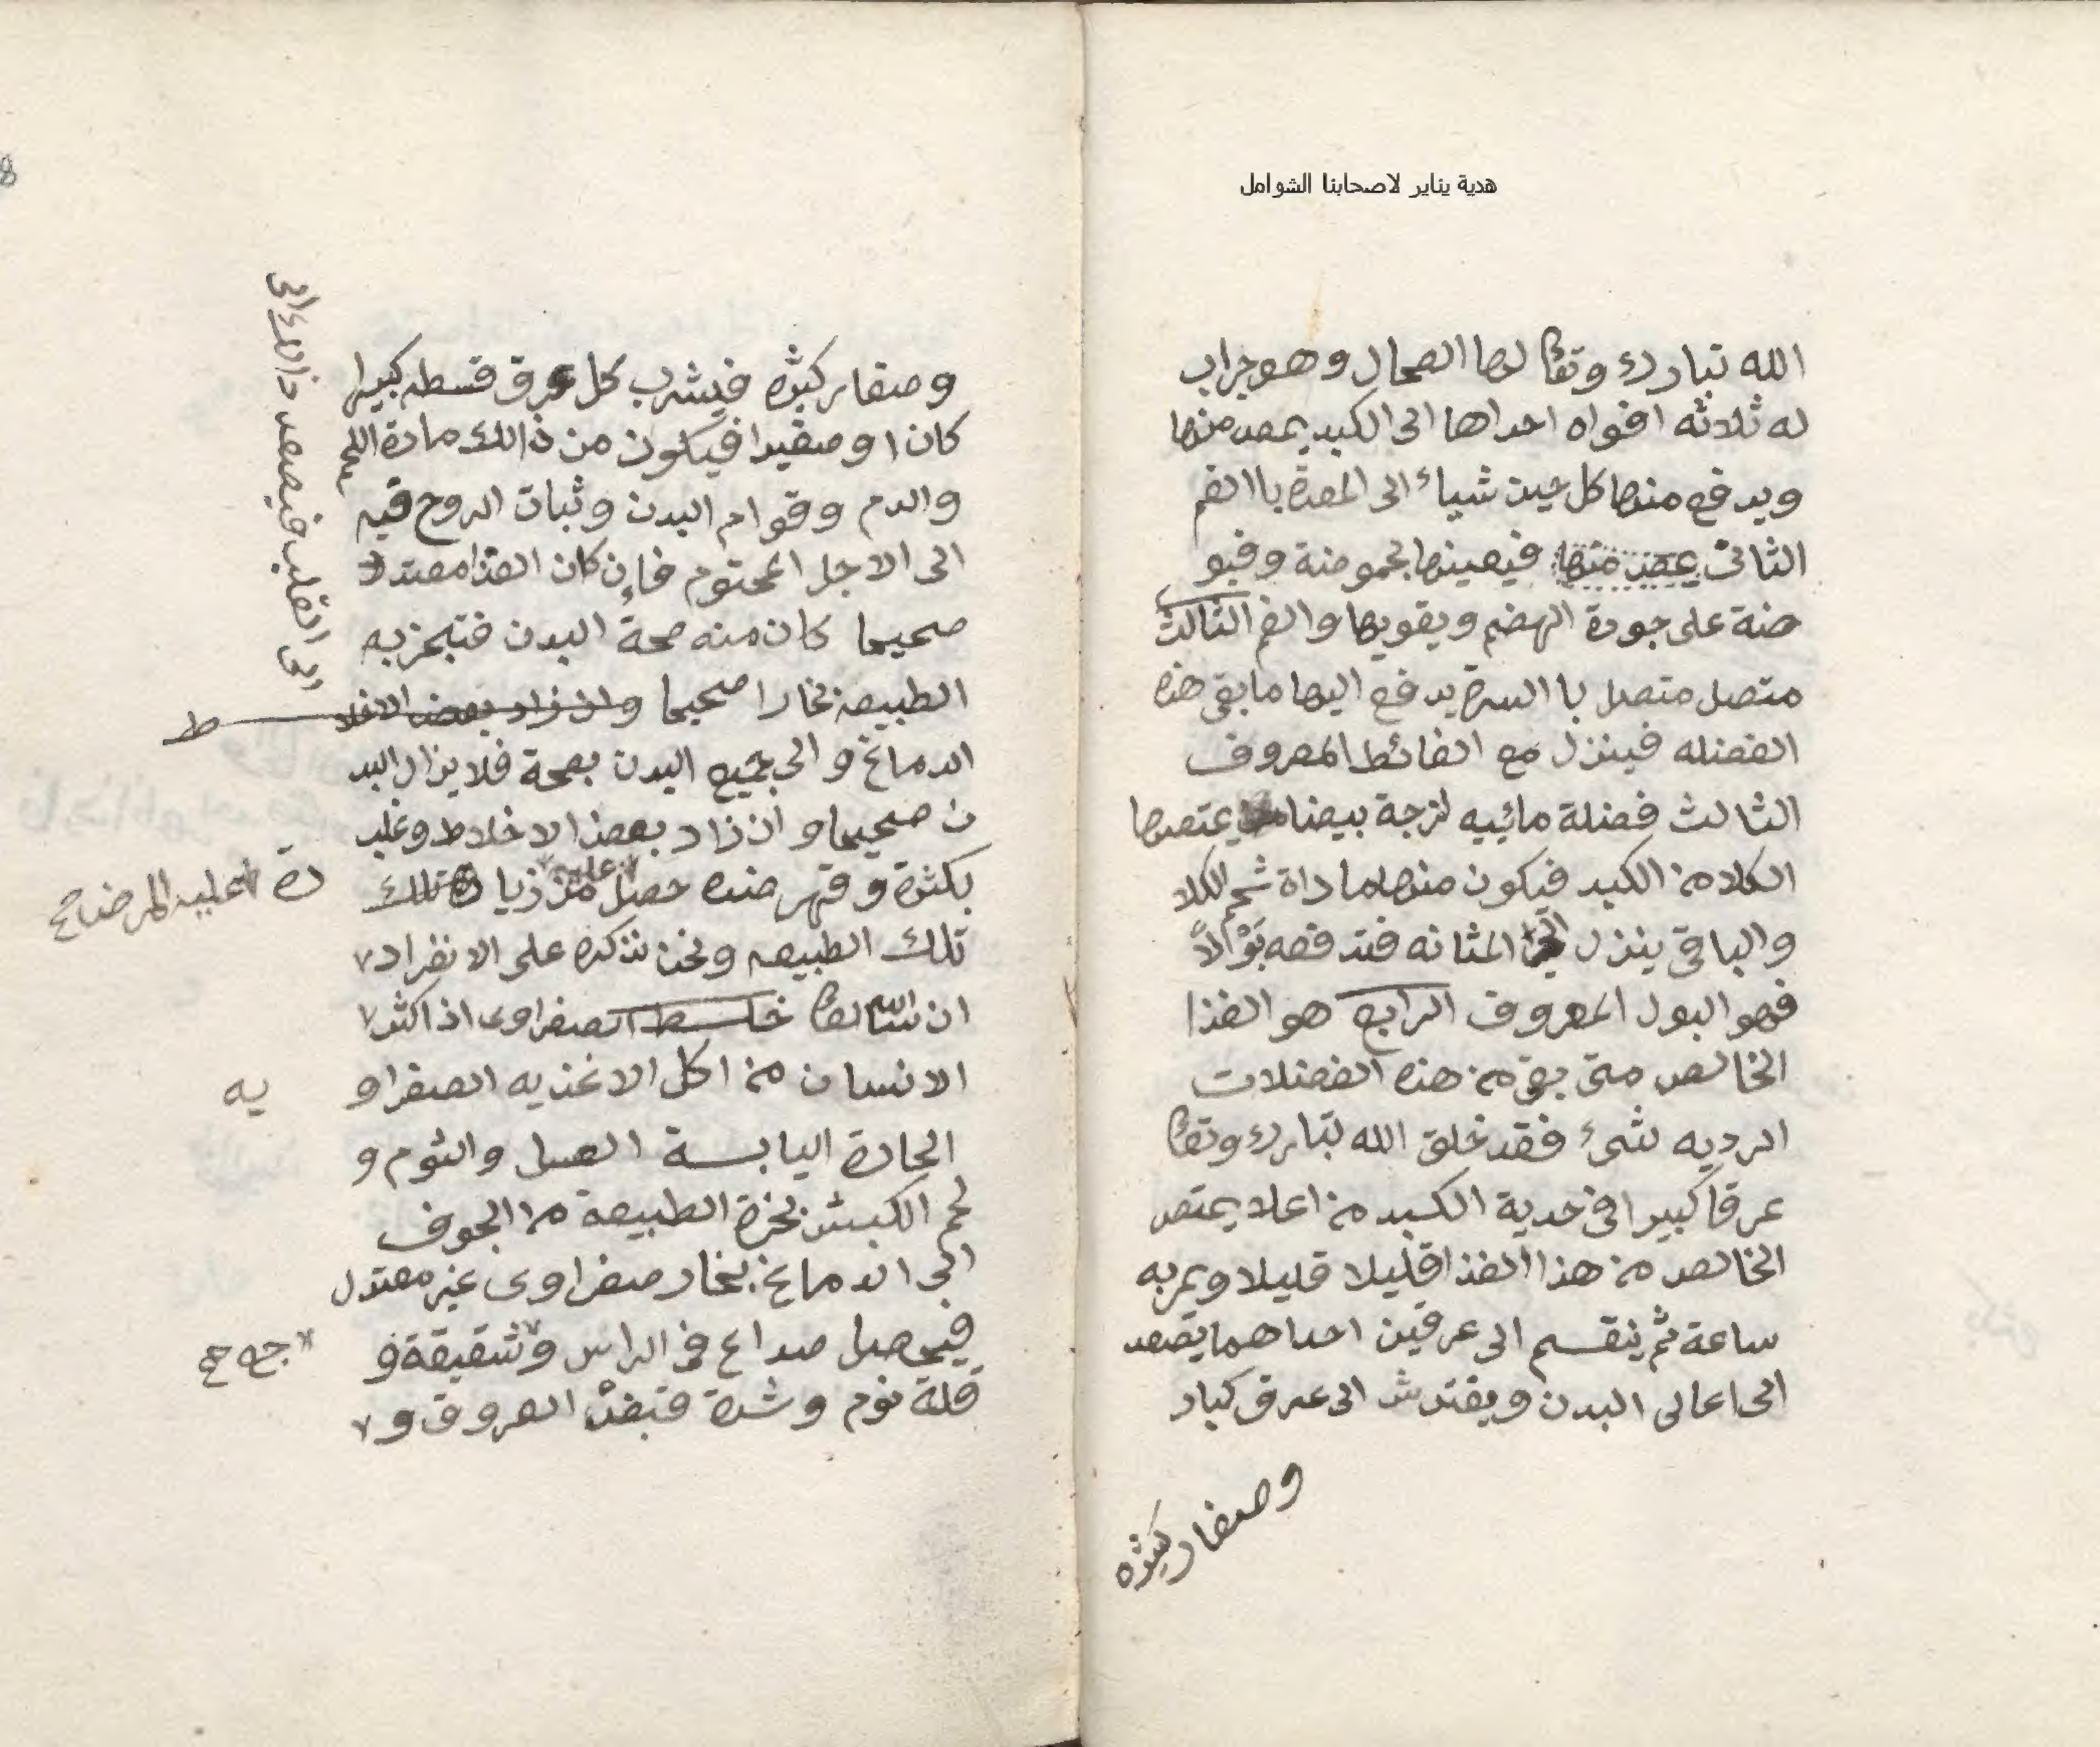 هدية يناير لاصحابنا الشوامل
الله تبارك وتعا لها الطحال وهو جراب
له ثلاثه افواه احداها الى الكبد يمص منها
ويدفع منها كل حين شياء الى المعدة باالفم
الثاني يمص منها فيعينها بحموضة وقبو
ضة على جودة الهضم ويقويها والفم الثالث
متصل متصل باالسرة يدفع اليها ما بقى هذه
الفضله فينزل مع الغائط المعروف
الثالث فضلة مائيه لزجة بيضا يمتصها
الكلا من الكبد فيكون منها ماداة شحم الكلا
والباقى ينزل الى المثانه فتدفعه بولاً
فهو البول المعروف الرابع هو الغذا
الخالص متى بقى من هذه الفضلات
الرديه شىء فقد خلق الله تبارك وتعا
عرقا كبيرا فى حدبة الكبد من اعلا يمتص
الخالص من هذا الغذا قليلا قليلا ويمر به
ساعة ثم ينقسم الى عرقين احداهما يصعد
الى اعالى البدن ويفترش الى عرق كبار
وصغار كثيره
وصغار كثيره فيشرب كل عرق قسطه كبيرا
كان او صغيرا فيكون من ذالك مادة اللحم
والدم وقوام البدن وثبات الروح فيه
الى الاجل المحتوم فإن كان الغذا معتدلا
صحيحا كان منه صحة البدن فتبخر به
الطبيعه بخارا صحيحا وان زاد بعض الاخلا ط
فيصعد ذالك الى
الى القلب
الدماغ و الى جميع البدن بصحة فلا يزال البد
ن صحيحا وان زاد بعض الاخلاط وغلب
بكثرة وقهر ضده حصل من زيا دة تلك
عليه
عليه المرض صح
تلك الطبيعه ونحن نذكره على الانفراد
ان شاالله تعا خلط الصفراوى اذا اكثر
الانسان من اكل الاغذيه الصفراو يه
الحارة اليابسة العسل والثوم و
لحم الكبش بخرة الطبيعة من الجوف
الى الدماغ بخار صفراوى غير معتدل
فيحصل صداع فى الراس وشقيقة و
قلة نوم وشدة العروق و